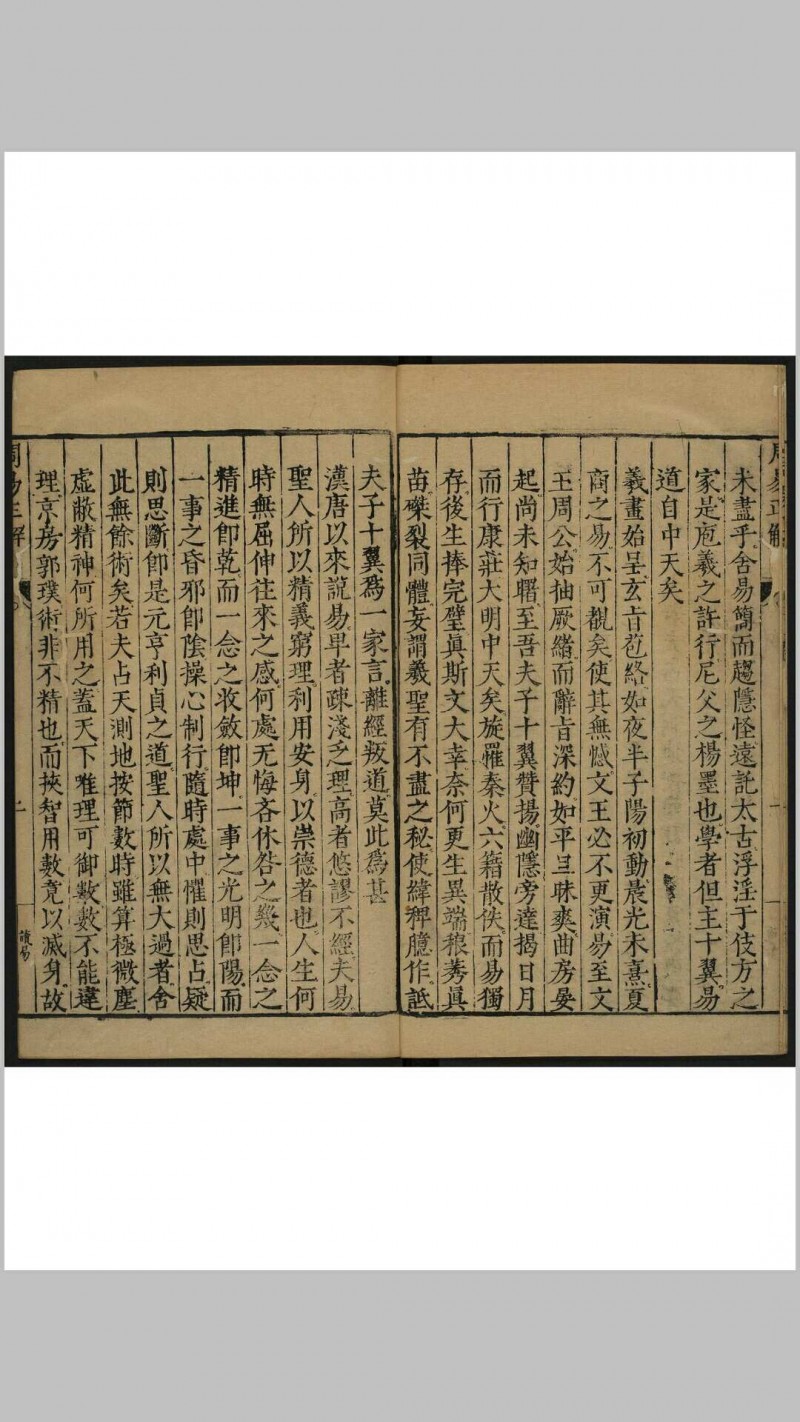 周易正解
未盡乎舍易簡而趨隱怪遠託太古浮淫于伎方之
家是庖羲之許行尼父之楊墨也學者但主十翼易
道自中天矣
羲畫始呈玄旨苞絡如夜半子陽初動晨光未熹夏
商之易不可觀矣使其無憾文王必不更演易至文
王周公始抽厥緒而辭旨深約如平旦昧爽曲房晏
起尚未知曙至吾夫子十翼贊揚幽隱旁達揭日月
而行康莊大明中天矣旋罹秦火六籍散佚而易獨
存後生捧完璧眞斯文大幸奈何更生異端稂莠眞
苗磔裂同體妄謂羲聖有不盡之秘使緯稗臆作詆
夫子十翼爲一家言離經叛道莫此爲甚
漢唐以來說易卑者疎淺乏理高者悠謬不經夫易
聖人所以精義窮理利用安身以崇德者也人生何
時無屈伸往來之感何處无悔吝休咎之幾一念之
精進卽乾而一念之收斂卽坤一事之光明卽陽而
一事之昏邪卽陰操心制行隨時處中懼則思占疑
則思斷卽是元亨利貞之道聖人所以無大過者舍
此無餘術矣若夫占天測地按節數時雖算極微塵
虛敝精神何所用之蓋天下唯理可御數數不能違
理京房郭璞術非不精也而挾智用數竟以滅身故
周易正解
二
讀易